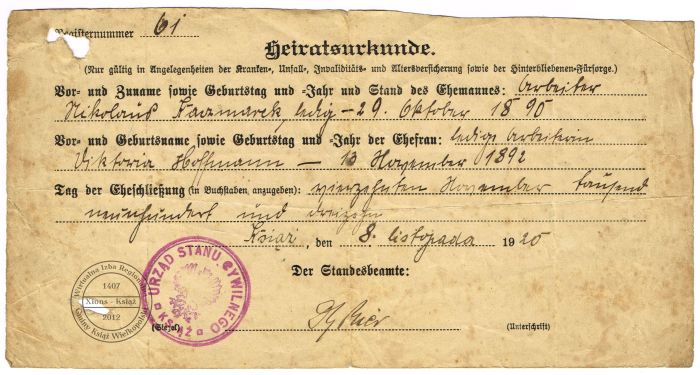 Registernummer 61
Heiratsurkunde.
(Nur gültig in Angelegenheiten der Kranken-, Unfall-, Invaliditäts- und Altersversicherung sowie der Hinterbliebenen-Fürsorge.)
Vor- und Zuname sowie Geburtstag und -Jahr und Stand des Ehemannes: Arbeiter
Nikolaus Kaczmarek, ledig – 29. Oktober 1890
Vor- und Geburtsname sowie Geburtstag und -Jahr der Ehefrau: ledige Arbeiterin
Viktoria Hoffmann – November 1892
Tag der Eheschließung (in Buchstaben, anzugeben): vierzehnten November tausend
neunhundert und dreizehn
Książ, den 8. listopada 1920
Der Standesbeamte:
URZĄD STANU CYWILNEGO
KSIĄŻ
(Siegel)
(Unterschrift)
Wirtualna Izba Regionalna
1407
Xions - Książ
2012
Gminy Książ Wielkopolski